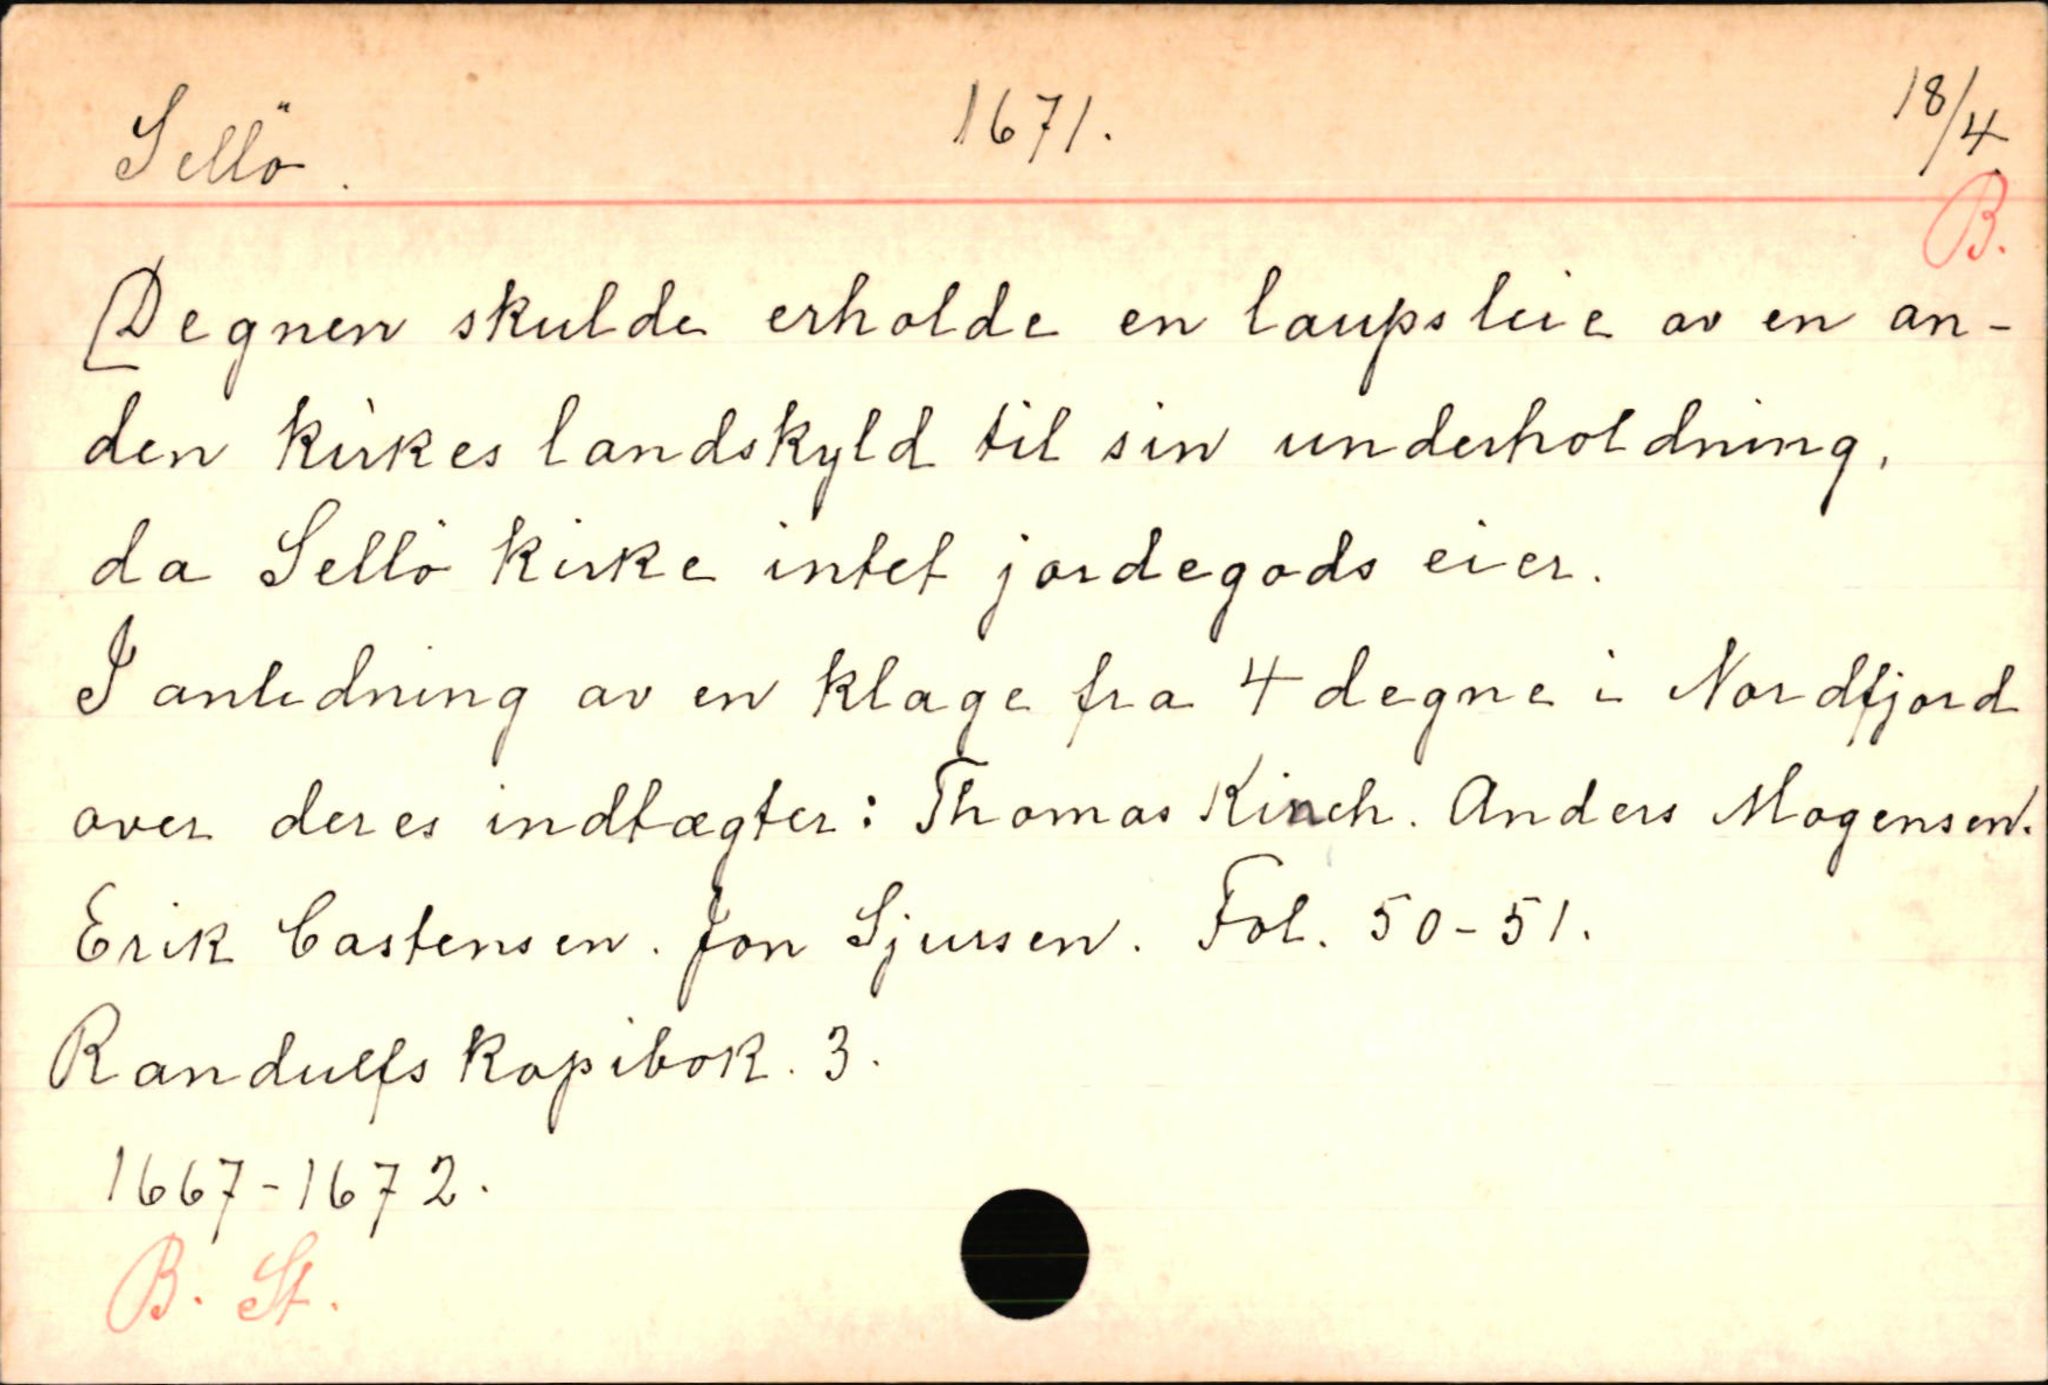 Sellö. 1671. 18/4
B.
Degnen skulde erholde en laupsleie av en an-
den kirkes landskyld til sin underholdning,
da Sellö kirke intet jordegods eier.
I anledning av en klage fra 4 degne i Nordfjord
over deres indtægter: Thomas Kinch. Anders Mogensen.
Erik Castensen. Jon Sjursen. Fol. 50-51.
Randulfs kopibok. 3.
1667-1672.
B. St.